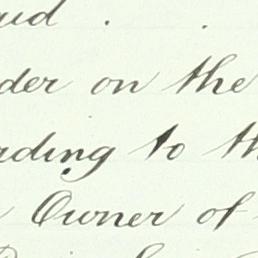 der on the
ading to th
Owner of